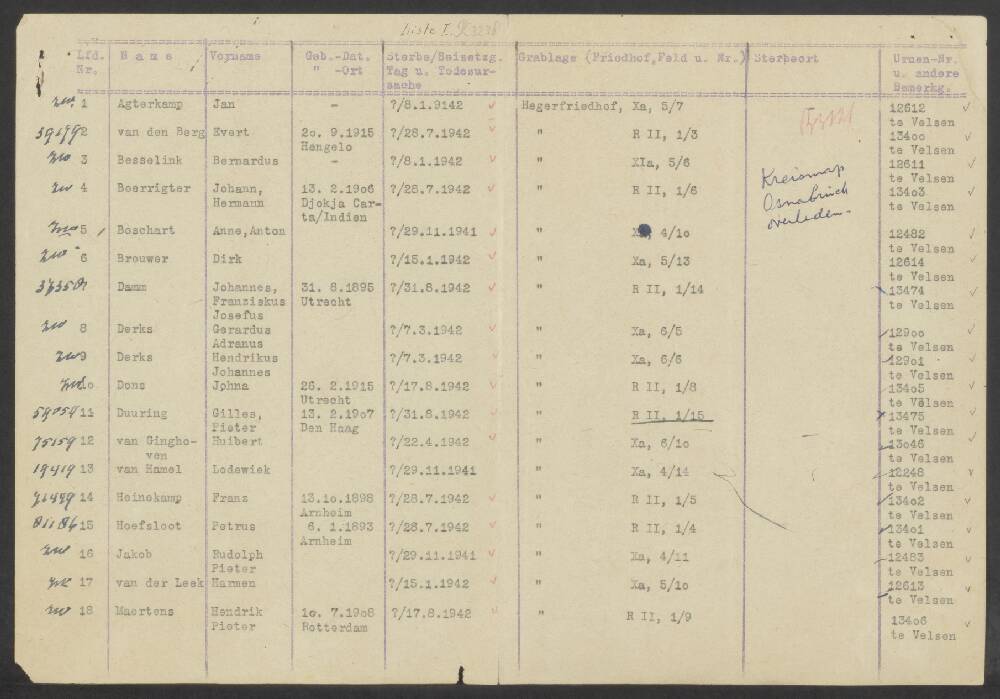 Liste I.
Lfd. Name Vorname Geb.-Dat. Sterbe/Beisetzg. Grablage (Friedhof,Feld u. Nr.) Sterbeort Urnen-Nr.
Nr. " -Ort Tag u. Todesur- u. andere
sache Bemerkg.
1 Agterkamp Jan - ?/8.1.9142 Hegerfriedhof, Xa, 5/7 12612
te Velsen
2 van den Berg Evert 2o. 9.1915 ?/28.7.1942 " R II, 1/3 134oo
Hengelo te Velsen
3 Besselink Bernardus - ?/8.1.1942 " XIa, 5/6 12611
te Velsen
4 Boerrigter Johann, 13. 2.19o6 ?/28.7.1942 " R II, 1/6 134o3
Hermann Djokja Car- te Velsen
ta/Indien
Kreismap
Osnabrück
overleden-
5 Boschart Anne,Anton ?/29.11.1941 " 4/1o 12482
te Velsen
6 Brouwer Dirk ?/15.1.1942 " Xa, 5/13 12614
te Velsen
Damm Johannes, 31. 8.1895 ?/31.8.1942 " R II, 1/14 13474
Franziskus Utrecht te Velsen
Josefus
8 Derks Gerardus ?/7.3.1942 " Xa, 6/5 129oo
Adranus te Velsen
9 Derks Hendrikus ?/7.3.1942 " Xa, 6/6 129o1
Johannes te Velsen
1o Dons Jphna 26. 2.1915 ?/17.8.1942 " R II, 1/8 134o5
Utrecht te Velsen
59059 11 Duuring Gilles, 13. 2.19o7 ?/31.8.1942 " R II, 1/15 13475
Pieter Den Haag te Velsen
75159 12 van Gingho- Huibert ?/22.4.1942 " Xa, 6/1o 13o46
ven te Velsen
19419 13 van Hamel Lodewiek ?/29.11.1941 " Xa, 4/14 12248
te Velsen
14 Heinekamp Franz 13.1o.1898 ?/28.7.1942 " R II, 1/5 134o2
Arnheim te Velsen
15 Hoefsloot Petrus 6. 1.1893 ?/28.7.1942 " R II, 1/4 134o1
Arnheim te Velsen
16 Jakob Rudolph ?/29.11.1941 " Xa, 4/11 12483
Pieter te Velsen
17 van der Leek Harmen ?/15.1.1942 " Xa, 5/1o 12613
te Velsen
18 Maertens Hendrik 1o. 7.19o8 ?/17.8.1942 " R II, 1/9 134o6
Pieter Rotterdam te Velsen